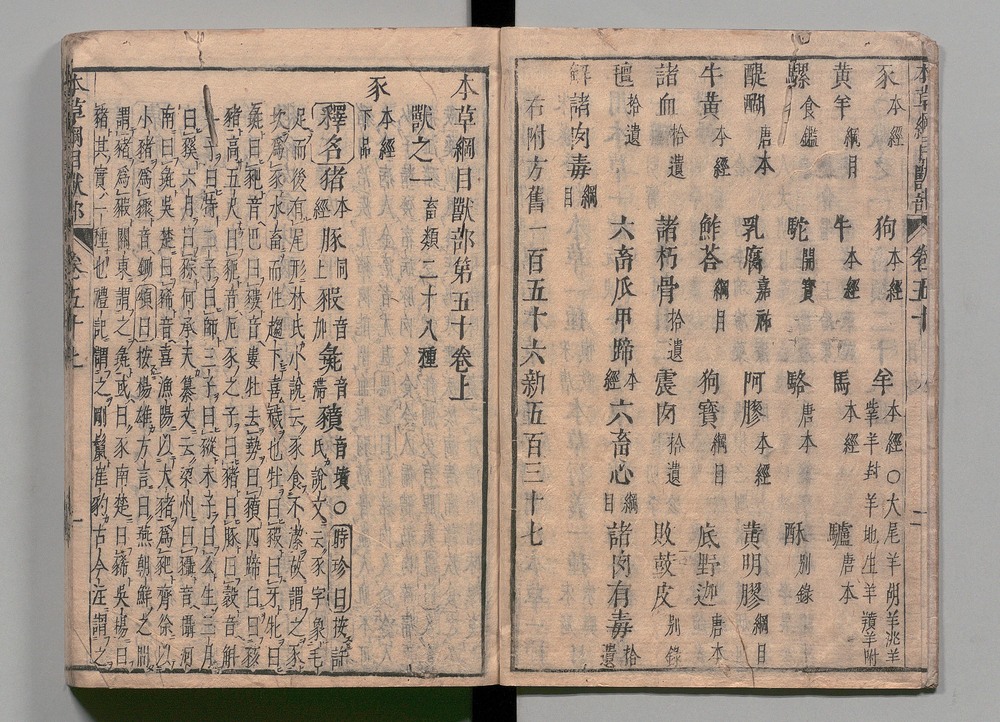 豕本經 狗本經 羊本經○大尾羊胡羊洮羊
䍧羊封羊地生羊䝱羊附
黃羊綱目 牛本經 馬本經 驢唐本
騾食鑑 駝開寶 酪唐本 酥別錄
醍醐唐本 乳腐嘉祐 阿膠本經 黃明膠綱目
牛黃本經 鮓荅綱目 狗寶綱目 底野迦唐本
諸血拾遺 諸朽骨拾遺 震肉拾遺 敗鼓皮別錄
氊拾遺 六畜爪甲蹄本經 六畜心綱目 諸肉有毒拾遺
解諸肉毒綱目
右附方舊一百五十六新五百三十七
本草綱目獸部 卷五十 二
本草綱目獸部第五十卷上
獸之一畜類二十八種
豕本經下品
釋名豬本經豚同上豭音加彘音滯豶音墳○時珍曰按許
氏說文云豕字象毛
足而後有尾形林氏小說云豕食不潔故謂之豕
坎爲豕水畜而性趨下喜穢也牡曰豭曰牙牝曰
彘曰豝音巴曰𧱏音婁牡去勢曰豶四蹄白曰豥
豬高五尺曰䝈音厄豕之子曰豬曰豚曰豰音斛
一子曰特二子曰師三子曰豵末子曰么生三月
曰豯六月曰䝋何承天纂文云梁州曰䝐音攝河
南曰彘吳楚曰豨音喜漁陽以大豬爲豝齊徐以
小豬爲䝕音鋤頌曰按楊雄方言曰燕朝鮮之間
謂豬爲豭關東謂之彘或曰豕南楚曰豨吳楊曰
豬其實一種也禮記謂之剛鬣崔豹古今注謂之
本草綱目獸部 卷五十上 一